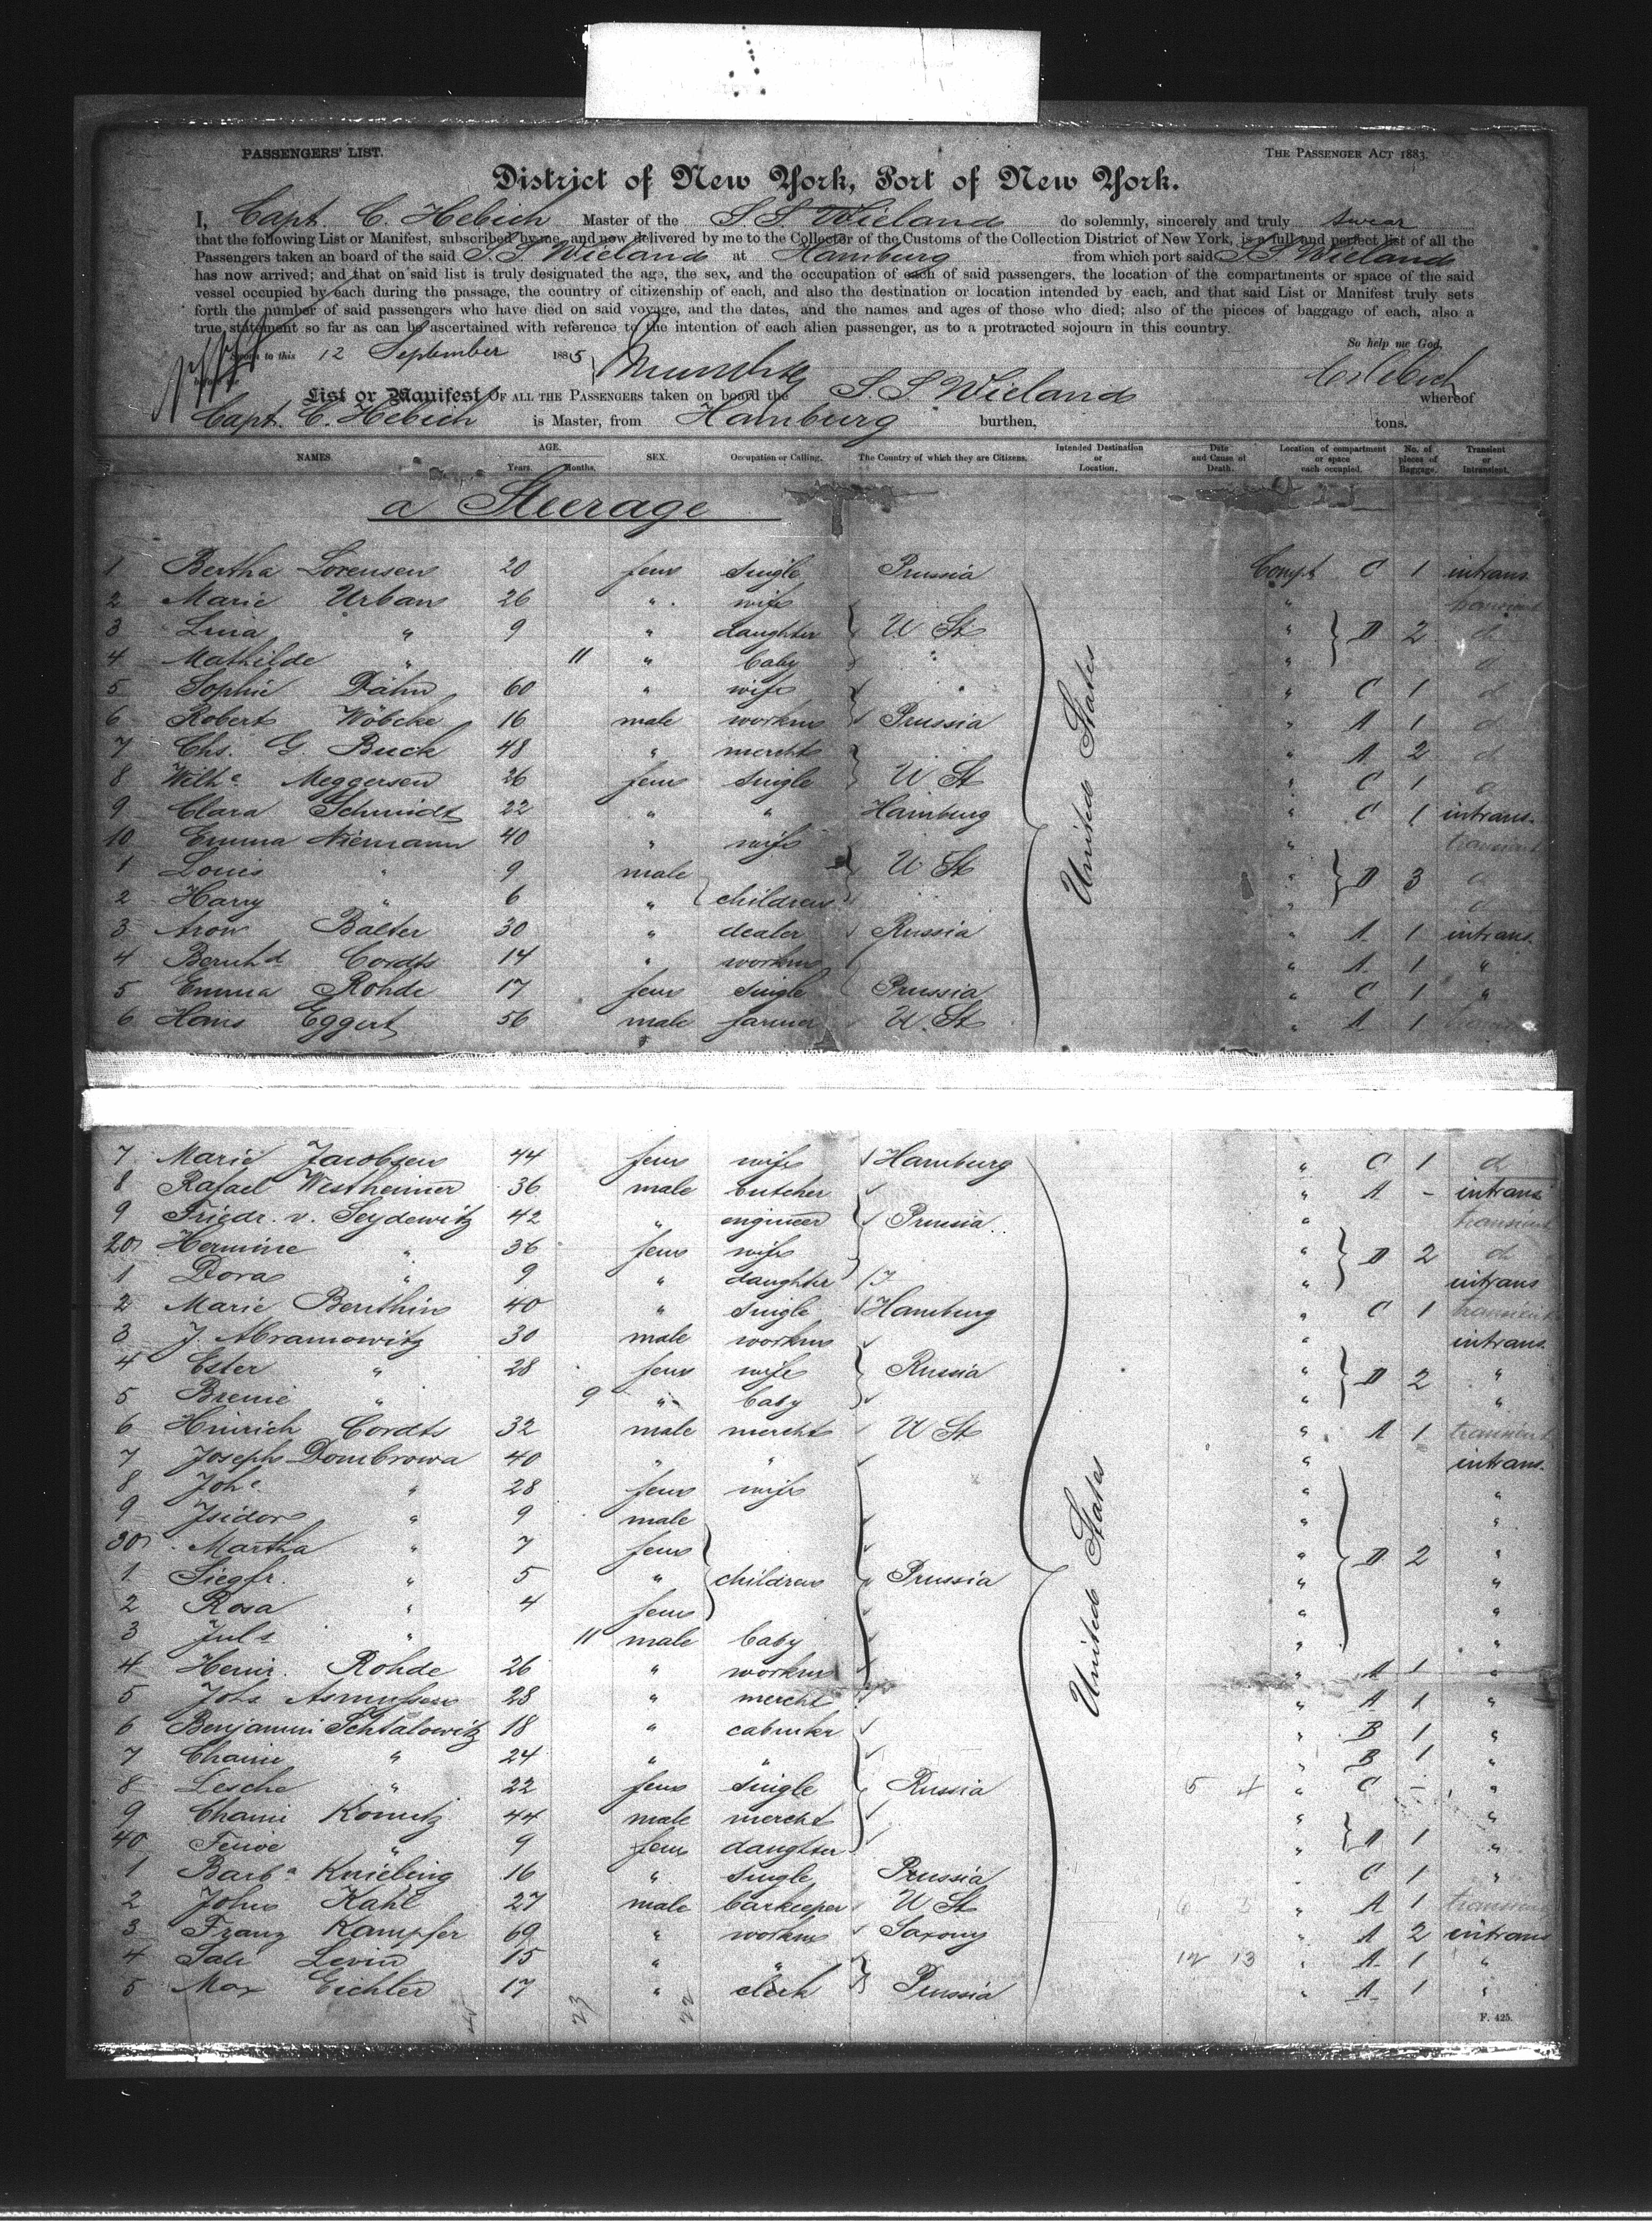 PASSENGERS' LIST.
THE PASSENGER ACT 1883.
District of New York, Port of New York.
I, Capt. C. Hebich Master of the S. S. Wieland do solemnly, sincerely and truly swear
that the following List or Manifest, subscribed by me, and now delivered by me to the Collector of the Customs of the Collection District of New York, is a full and perfect list of all the
Passengers taken an board of the said S. S. Wieland at Hamburg from which port said S S Wieland
has now arrived; and that on said list is truly designated the age, the sex, and the occupation of each of said passengers, the location of the compartments or space of the said
vessel occupied by each during the passage, the country of citizenship of each, and also the destination or location intended by each, and that said List or Manifest truly sets
forth the number of said passengers who have died on said voyage, and the dates, and the names and ages of those who died; also of the pieces of baggage of each, also a
true statement so far as can be ascertained with reference to the intention of each alien passenger, as to a protracted sojourn in this country.
So help me God,
Sworn to this 12 September 1885
C Hebich
List or Manifest OF ALL THE PASSENGERS taken on board the S. S Wieland whereof
Capt. C. Hebich is Master, from Hamburg burthen, tons.
NAMES. AGE. Years. Months. SEX. Occupation or Calling. The Country of which they are Citizens. Intended Destination or Location. Date and Cause of Death. Location of compartment or space each occupied. No. of pieces of Baggage. Transient or Intransient.
a Steerage
1 Bertha Lorensen 20 fem single Prussia Compt C 1 intrans
2 Marie Urban 26 " wife " transient
3 Lina " 9 " daughter U St " D 2 d
4 Mathilde " 11 " baby " " d
5 Sophie Dähn 60 " wife " " C 1 d
6 Robert Wöbcke 16 male workm Prussia " A 1 d
7 Chs. G. Buck 48 " mercht " A 2 d
8 Wilhe Meggersen 26 fem single U St " C 1 d
9 Clara Schmidt 22 " " Hamburg " C 1 intrans.
10 Emma Niemann 40 " wife " transient
1 Louis " 9 male U St " D 3 d
2 Harry " 6 " children " d
3 Aron Balter 30 " dealer Russia " A 1 intrans.
4 Bernhd Cordts 14 " workm " A 1 "
5 Emma Rohde 17 fem single Prussia " C 1 "
6 Hans Eggert 56 male farmer U. St " A 1
United States
7 Marie Jacobsen 44 fem wife Hamburg " C 1 d
8 Rafael Westheimer 36 male butcher " A - intrans
9 Friedr. v. Seydewitz 42 " engineer Prussia " transient
20 Hermine " 36 fem wife " D 2 d
1 Dora " 9 " daughter " intrans
2 Marie Benthin 40 " single Hamburg " C 1 transient
3 J. Abramowitz 30 male workm " intrans.
4 Ester " 28 fem wife Russia " D 2 "
5 Breine " 9 " baby " "
6 Hinrich Cordts 32 male mercht U St " A 1 transient
7 Joseph Dombrowa 40 " " " intrans.
8 Johe " 28 fem wife " "
9 Isidor " 9 male " "
30 Martha " 7 fem " D 2 "
1 Siegfr. " 5 " children Prussia " "
2 Rosa " 4 fem " "
3 Juls " 11 male baby " "
4 Heinr. Rohde 26 " workm " A 1 "
5 Johs Asmussen 28 " mercht " A 1 "
6 Benjamin Schtalowitz 18 " cabmkr " B 1 "
7 Chaim " 24 " " " B 1 "
8 Lesche " 22 fem single Russia 5 4 " C - "
9 Chaim Komitz 44 male mercht " "
40 Feiwe " 9 fem daughter " D 1 "
1 Barba Knieling 16 " single Prussia " C 1 "
2 John Kahl 27 male barkeeper U St " A 1 transient
3 Franz Kampfer 69 " workm Saxony " A 2 intrans
4 Sali Levin 15 " " 12 13 " A 1 "
5 Max Eichler 17 " clerk Prussia " A 1 "
United States
23
22
F. 425.